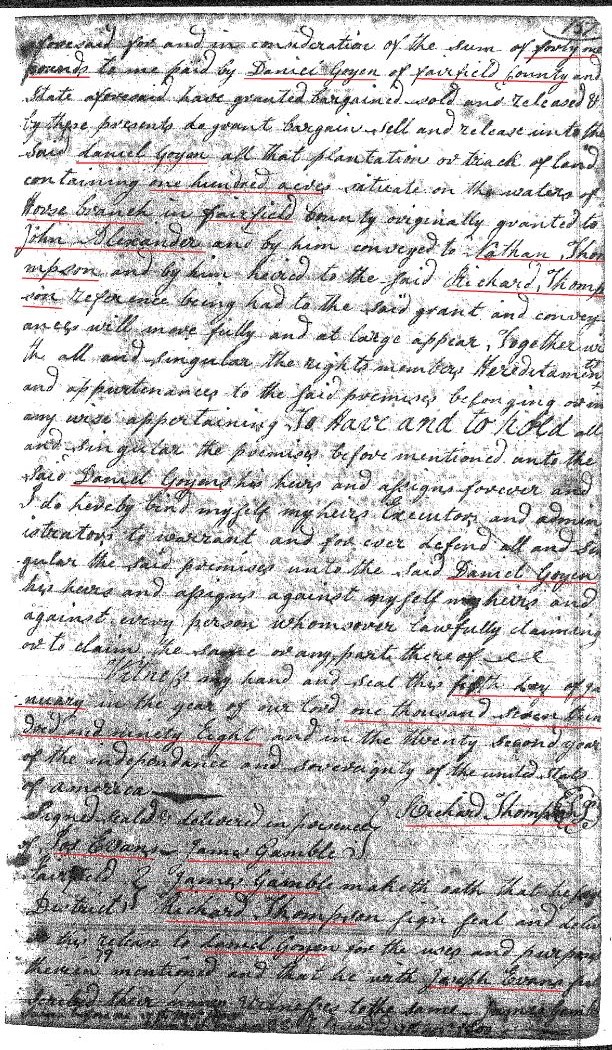 157
aforesaid for and in consideration of the sum of forty one
pounds to me paid by Daniel Goyen of fairfield County and
State aforesaid have granted bargained sold and released &
by these presents do grant bargain sell and release unto the
said daniel Goyen all that plantation or track of land
containing one hundred acres situate on the waters of
Horse branch in fairfield County originally granted to
John Alexander and by him conveyed to Nathan Tho
mpson and by him to the said Richard Thomp
son reference being had to the said grant and convey
ances will more fully and at large appear, Together wi
th all and singular the rights members Hereditaments
and appurtenances to the said premises belonging or in
any wise appertaining To Have and to hold all
and singular the premises before mentioned unto the
said Daniel Goyen his heirs and assigns forever and
I do hereby bind myself my heirs Executors and admin
istrators to warrant and for ever defend all and sin
gular the said premises unto the said Daniel Goyen
his heirs and assigns against myself my heirs and
against every person whomsover lawfully claiming
or to claim the same or any part there of
Witness my hand and seal this day of ja
nuary in the year of our lord one thousand seven hun
dred and ninety Eight and in the twenty second year
of the independance and sovereignty of the united states
of america
Signed sealed & delivered in presence Richard Thompson
of Jos Evans James Gamble
fairfield James Gamble maketh oath that he
District Richard Thompson sign seal and
this release to Daniel Goyen for the uses and
therein mentioned and that he with Joseph Evans
their names Witnesses to the same James